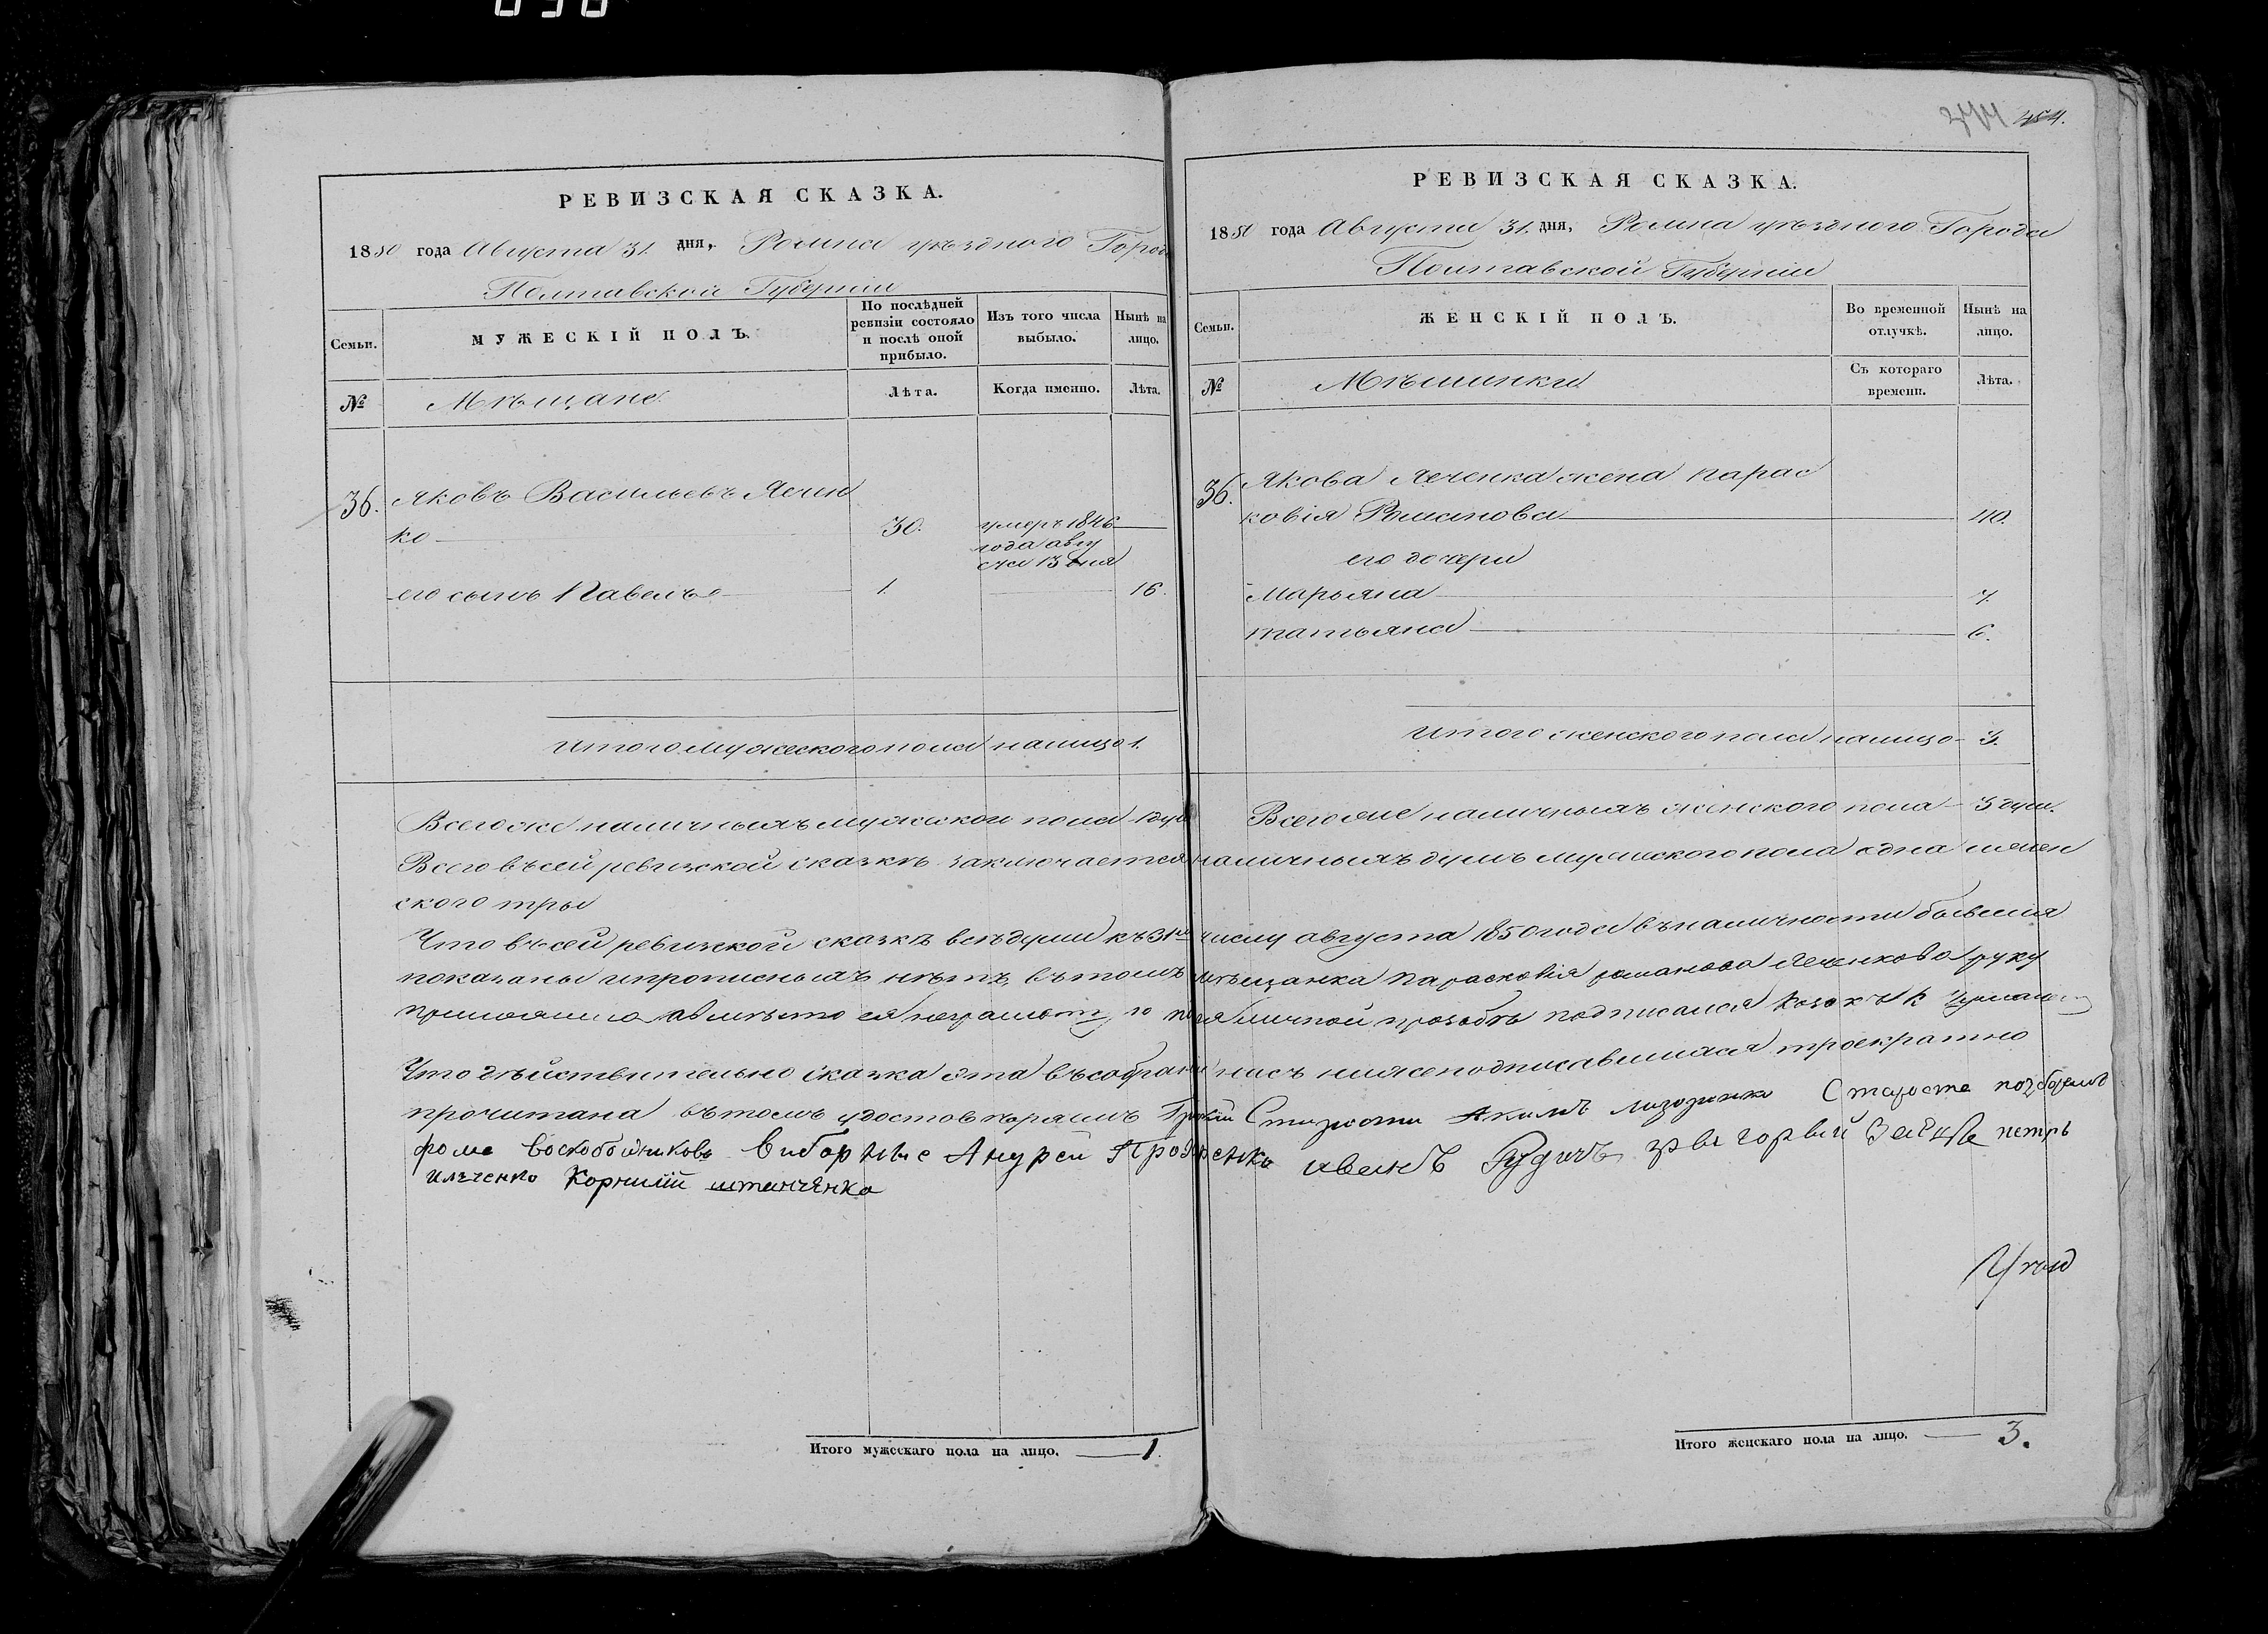 744 484.
РЕВИЗСКАЯ СКАЗКА.
1850 года Августа 31. дня, Ромна уѣзднаго Город
Полтавской Губерніи
Семьи.
МУЖЕСКІЙ ПОЛЪ.
По послѣдней ревизіи состояло и послѣ оной прибыло.
Изъ того числа выбыло.
Нынѣ на лицо.
№
Мѣщане.
Лѣта.
Когда именно.
Лѣта.
36. Яковъ Васильевъ Ячен
ко 30. умеръ 1846
года авгу
ста 13 дня
его сынъ Павелъ 1. 16.
итого мужеского пола налицо 1.
Всегоже наличныхъ мужеского пола 1 душ
РЕВИЗСКАЯ СКАЗКА.
1850 года Августа 31. дня, Ромна уѣздного Города
Полтавской Губерніи
Семьи.
ЖЕНСКІЙ ПОЛЪ.
Во временной отлучкѣ.
Нынѣ на лицо.
№
Мѣщанки
Съ котораго времени.
Лѣта.
36. Якова Яченка жена парас
ковія Романова 40.
его дочери
Марьяна 7.
татьяна 6.
итого женского пола налицо 3.
Всегоже наличныхъ женского пола 3 душ.
Всего въ сей ревизской сказкѣ заключается наличныхъ душъ мужеского пола одна и женск
ского три
Что въ сей ревизской сказкѣ всѣ души къ 31му числу августа 1850 года въ наличности бывшия
показаны и прописныхъ нѣтъ, въ томъ мѣщанка Парасковія романова Яченкова руку
приложила а вместо ея неграмотной по ея личной прозьбѣ подписался козакъ К
Что дѣйствительно сказка эта въ собраніи насъ нижеподписавшихся троекратно
прочитана въ томъ удостовѣряемъ Староста Акимъ Староста
фома воскобойниковъ виборные Андрей иванъ Рудичъ Заика петръ
илченко Корнилій штанченко
Итого мужескаго пола на лицо. 1.
Итого женскаго пола на лицо. 3.